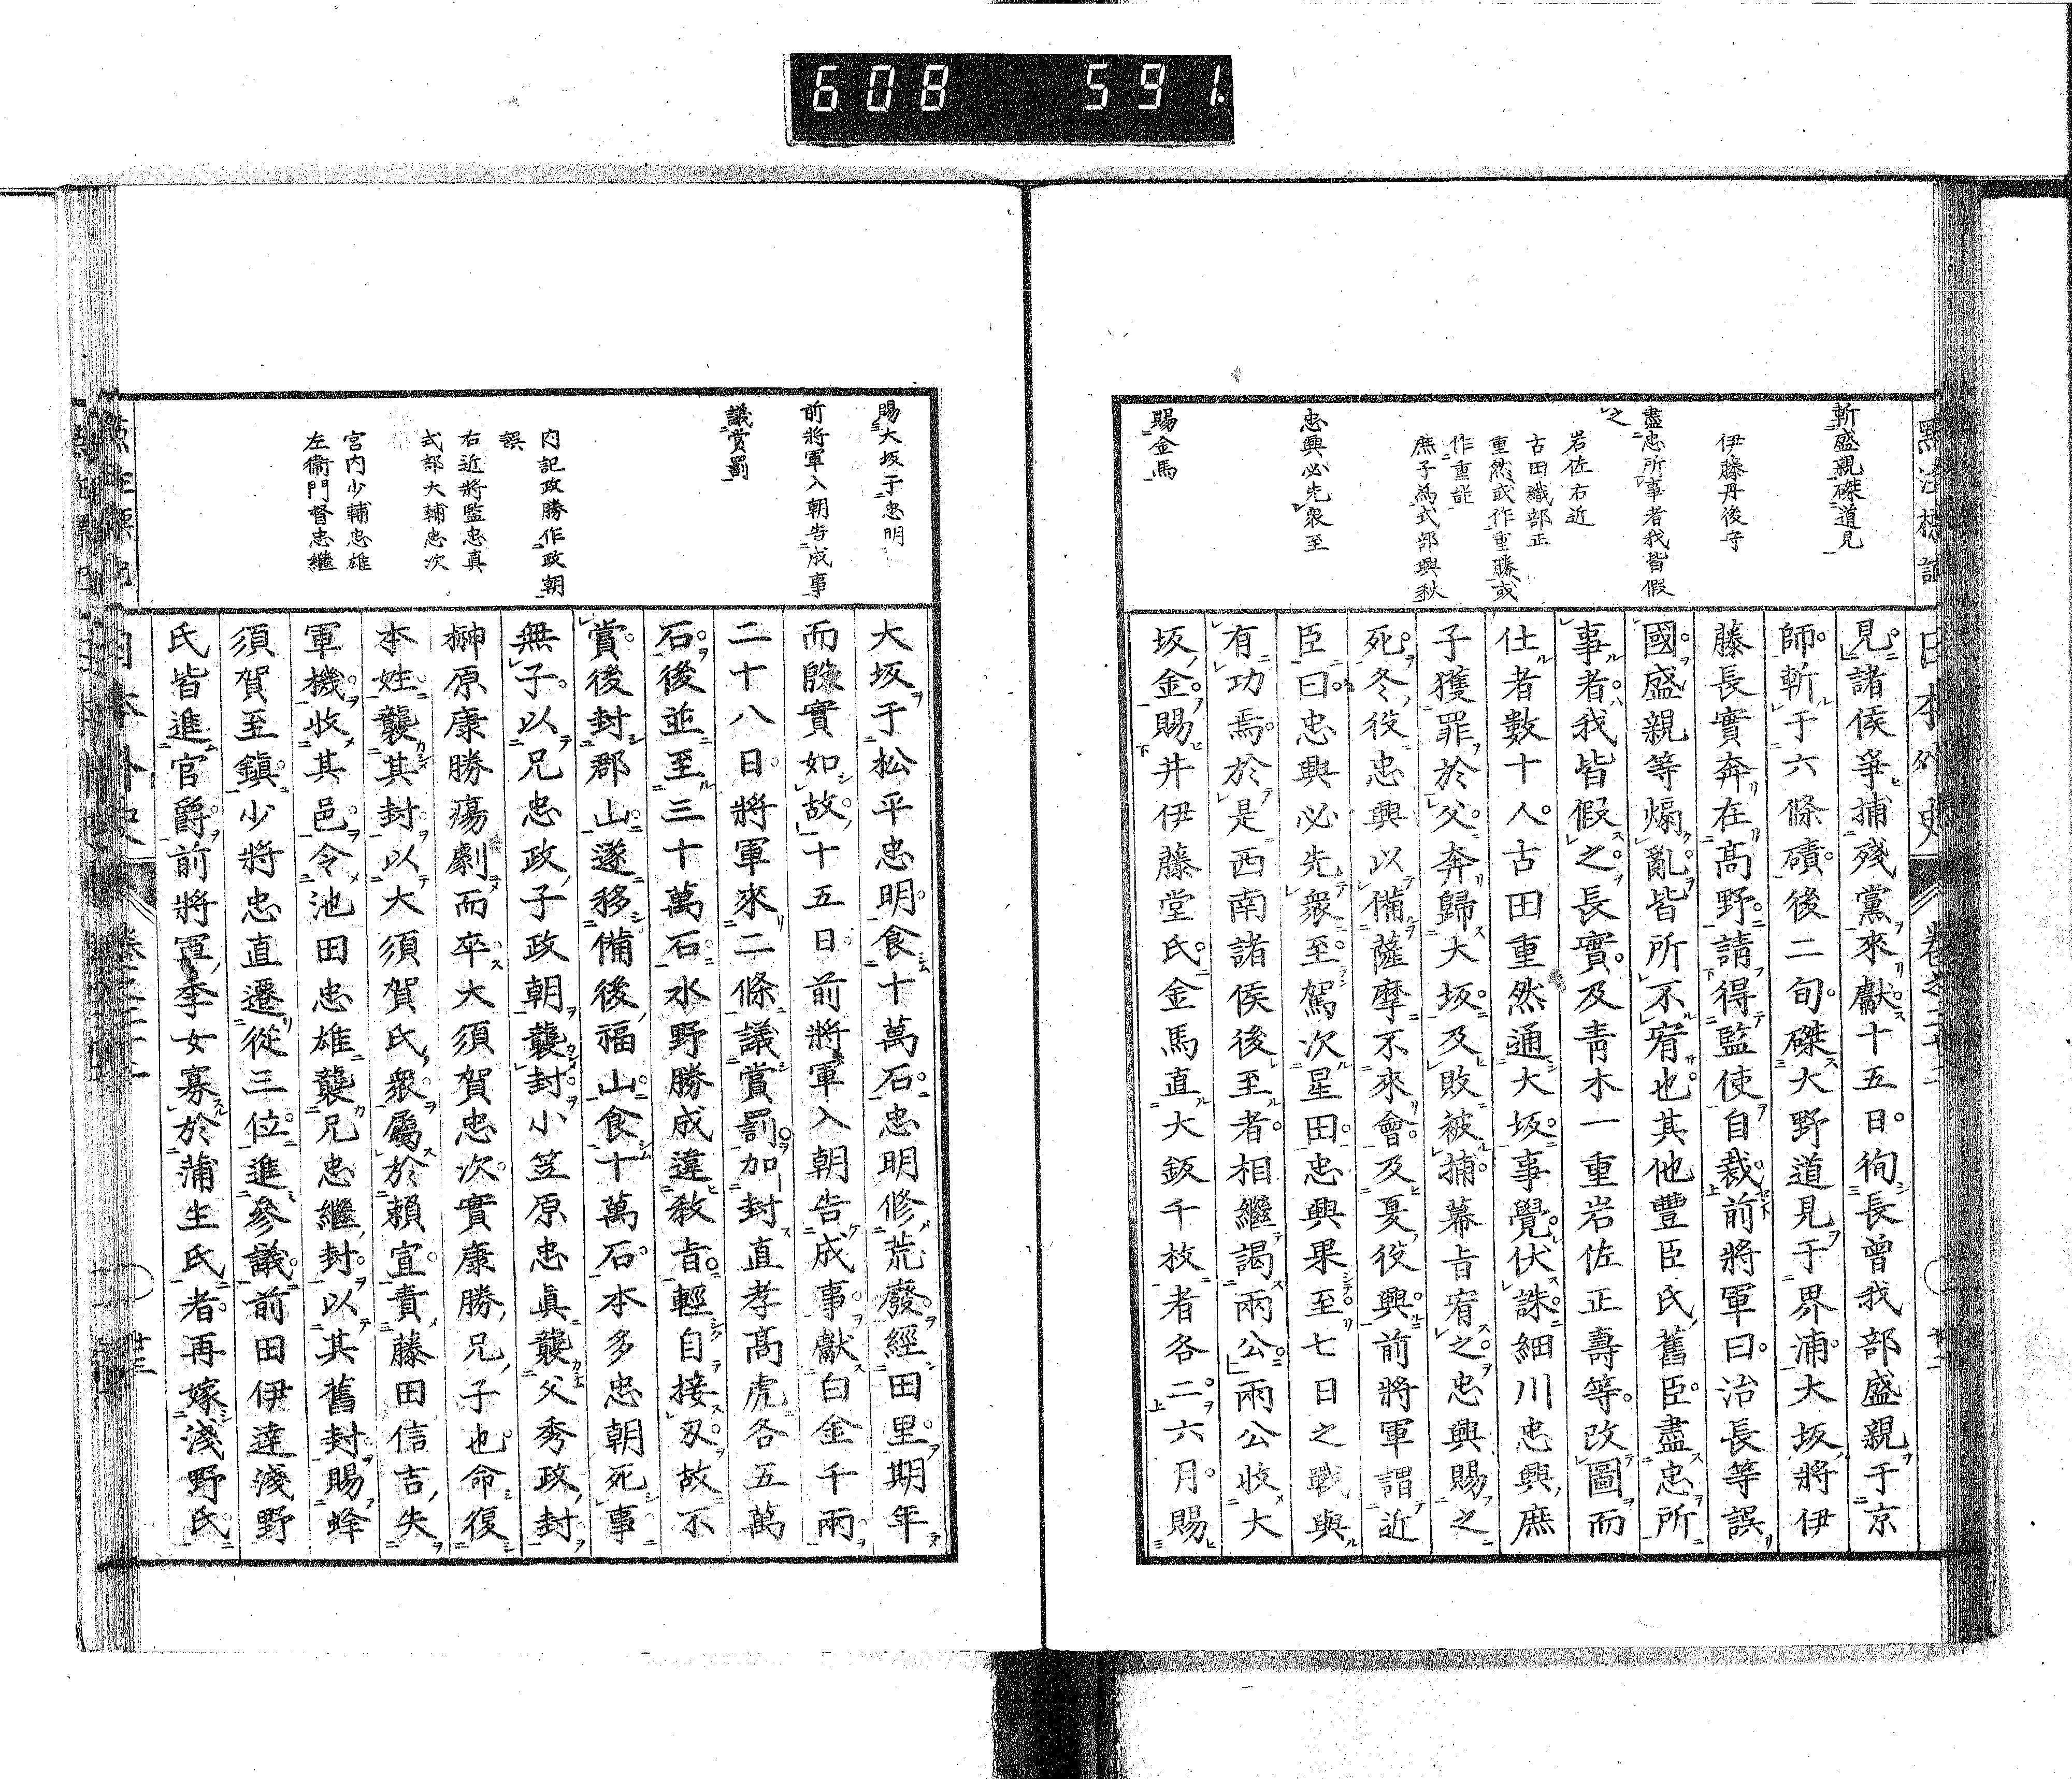 608 591.
日本外史
卷之二十二
廿二
斬盛親磔道見
伊藤丹後守
盡忠所事者我皆假
之
岩佐右近
古田織部正
重然或作重勝或
作重能
庶子為式部興秋
忠興必先衆至
賜金馬
見諸侯爭捕殘黨來獻十五日徇長曾我部盛親于京
師斬于六條磧後二旬磔大野道見于界浦大坂將伊
藤長實奔在高野請得監使自裁前將軍曰治長等誤
國盛親等煽亂皆所不宥也其他豐臣氏舊臣盡忠所
事者我皆假之長實及青木一重岩佐正壽等改圖而
仕者數十人古田重然通大坂事覺伏誅細川忠興庶
子獲罪於父奔歸大坂及敗被捕幕旨宥之忠興賜之
死冬役忠興以備薩摩不來會及夏役興前將軍謂近
臣曰忠興必先衆至駕次星田忠興果至七日之戰與
有功焉於是西南諸侯後至者相繼謁兩公兩公收大
坂金賜井伊藤堂氏金馬直大鈑千枚者各二六月賜
賜大坂于忠明
前將軍入朝告成事
議賞罰
內記政勝作政朝
誤
右近將監忠真
式部大輔忠次
宮內少輔忠雄
左衞門督忠繼
大坂于松平忠明食十萬石忠明修荒廢經田里期年
而殷實如故十五日前將軍入朝告成事獻白金千兩
二十八日將軍來二條議賞罰加封直孝高虎各五萬
石後並至三十萬石水野勝成違教旨輕自接刃故不
賞後封郡山遂移備後福山食十萬石本多忠朝死事
無子以兄忠政子政朝襲封小笠原忠眞襲父秀政封
榊原康勝瘍劇而卒大須賀忠次實康勝兄子也命復
本姓襲其封以大須賀氏衆屬於賴宣責藤田信吉失
軍機收其邑令池田忠雄襲兄忠繼封以其舊封賜蜂
須賀至鎭少將忠直遷從三位進參議前田伊達淺野
氏皆進官爵前將軍季女寡於蒲生氏者再嫁淺野氏
廿三